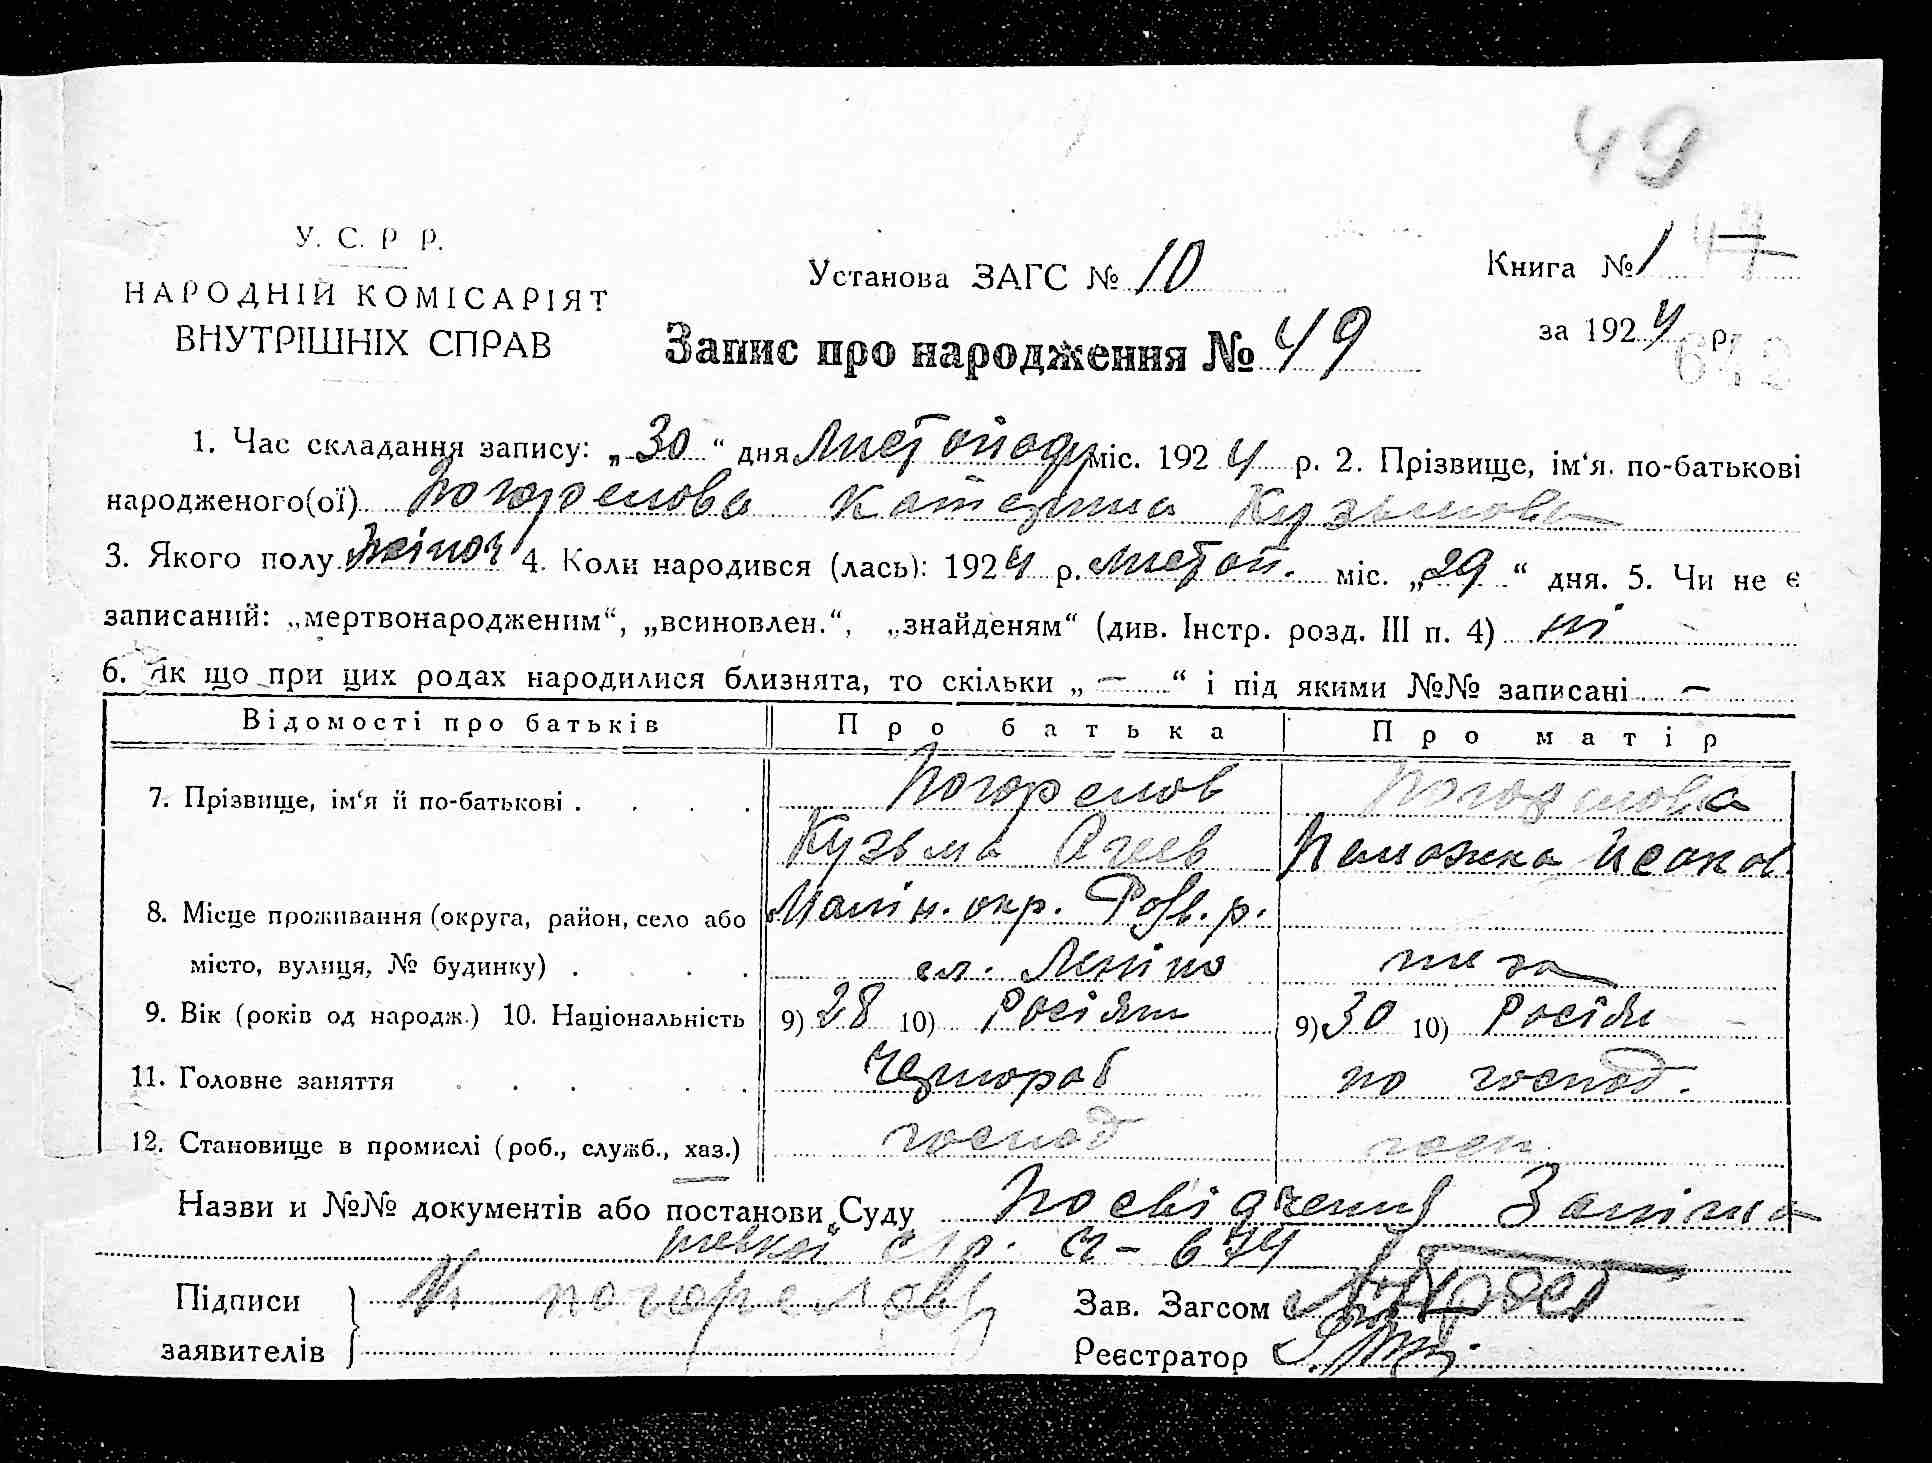 49
У. С. Р Р.
НАРОДНІЙ КОМІСАРІЯТ
ВНУТРІШНІХ СПРАВ
Установа ЗАГС № 10
Книга № 1
за 1924 р.
642
Запис про народження № 49
1. Час складання запису: „30“ дня Листопаду міс. 1924 р. 2. Прізвище, ім‘я, по-батькові
народженого(ої) Погорелова Катерина Кузьмова
3. Якого полу жіноч 4. Коли народився (лась): 1924 р. листоп. міс. „29“ дня. 5. Чи не є
записаний: „мертвонародженим“, „всиновлен.“, „знайденям“ (див. Інстр. розд. III п. 4) ні
6. Як що при цих родах народилися близнята, то скільки „ — “ і під якими №№ записані —
Відомості про батьків Про батька Про матір
7. Прізвище, ім‘я й по-батькові . . . . Погорелов Погорелова
Кузьма Агеев Пелажка Исаков
8. Місце проживання (округа, район, село або окр. р.
місто, вулиця, № будинку) . . . . сл.
9. Вік (років од народж.) 10. Національність 9) 28 10) Росіян 9) 30 10) Росіян
11. Головне заняття . . . . . Чернороб по господ.
12. Становище в промислі (роб., служб., хаз.) господ госп.
Назви и №№ документів або постанови Суду Посвідчення
ч - 674
Підписи
заявителів
Погорелов
Зав. Загсом
Реєстратор